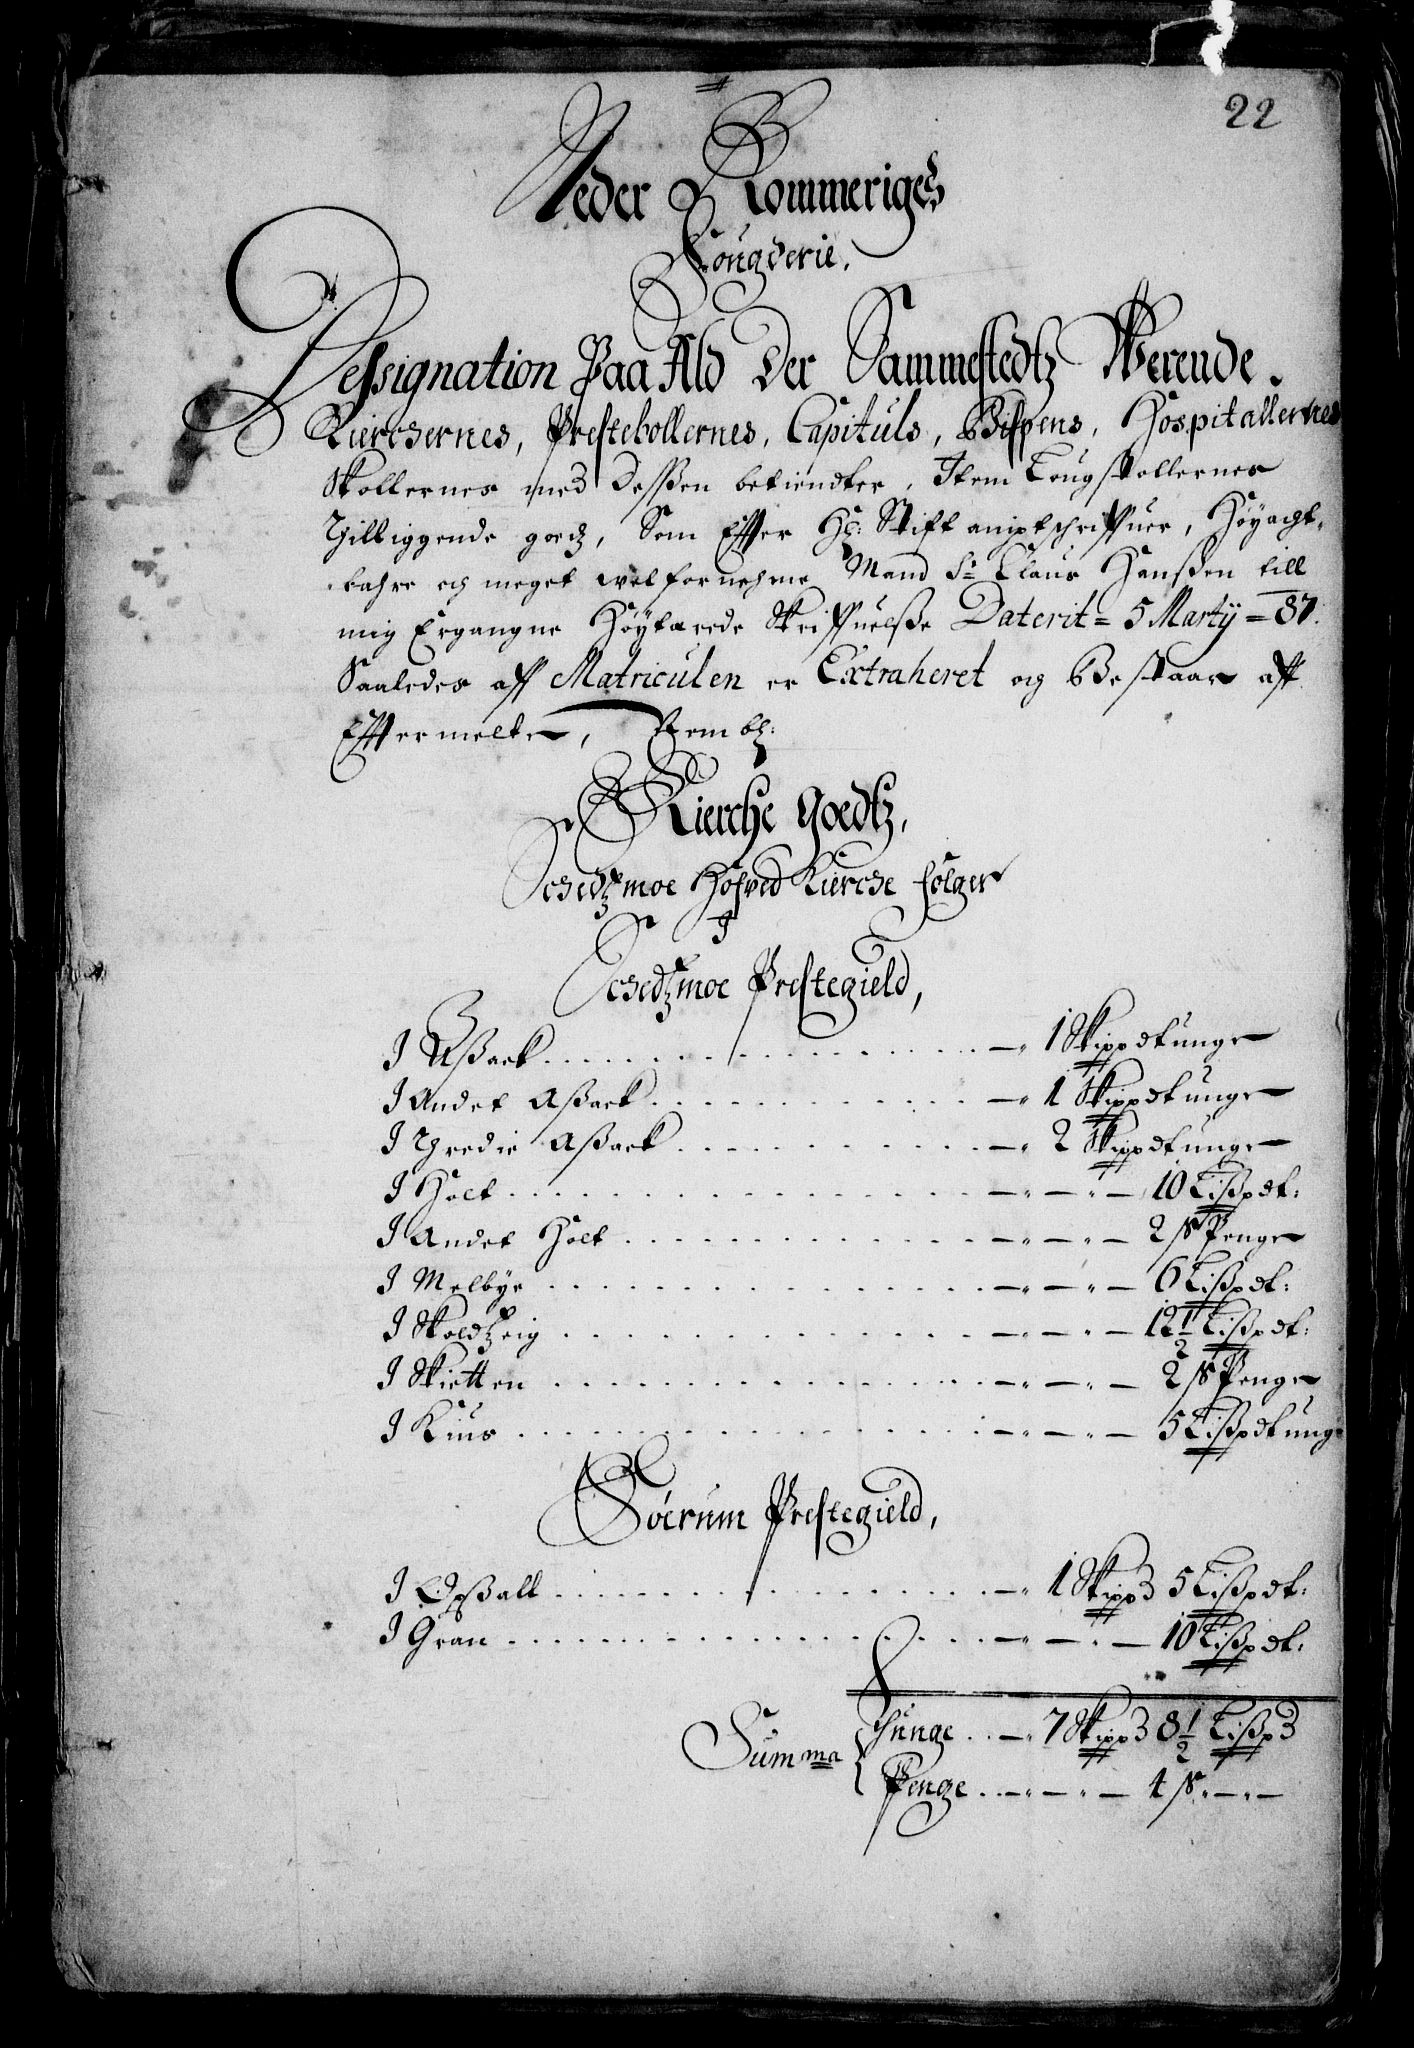 22
Neder Rommeriges
Fougderie.
Dessignation Paa Ald Der Sammestedtz Werende.
Kierchernes, Prestebollernes, Capituls, Bispens, Hospitallernes
Skollernes med Dessßen betiendter, Item Lougstollernes
Tilliggende goedz, Som Effter Hr: Stiftamptschriffuer, Høyacht-
bahre och meget welfornehme Mand Sr Claus Hanßen till
mig Ergangne Høytærede Skriffuelße Daterit = 5 Martij = 87.
Saaledes aff Matriculen er Extraheret og Bestaar aff
Efftermelte, Nembl:
Kierche Goedtz,
Schedtzmoe Hofved Kierche følger
I
Schedtzmoe Prestegield,
I Aßack 1 Skippdt unge
I Andet Aßack 1 Skippdt unge
I Thredie Aßack 2 Skippdt unge
I Holt 10 Lißpdt:
I Andet Holt 2 ß Penge
I Melbye 6 Lißpdt:
I Skoldtzeig 12 1/2 Lißpdt:
I Skietten 2 ß Penge
I Kius 5 Lißpdt ung:
Söerum Prestegield,
I Opßall 1 Skippd 5 Lißpdt:
I Gran 10 Lißpdt:
Summa Thunge 7 Skippd 8 1/2 Lißpd
Penge 4 ß